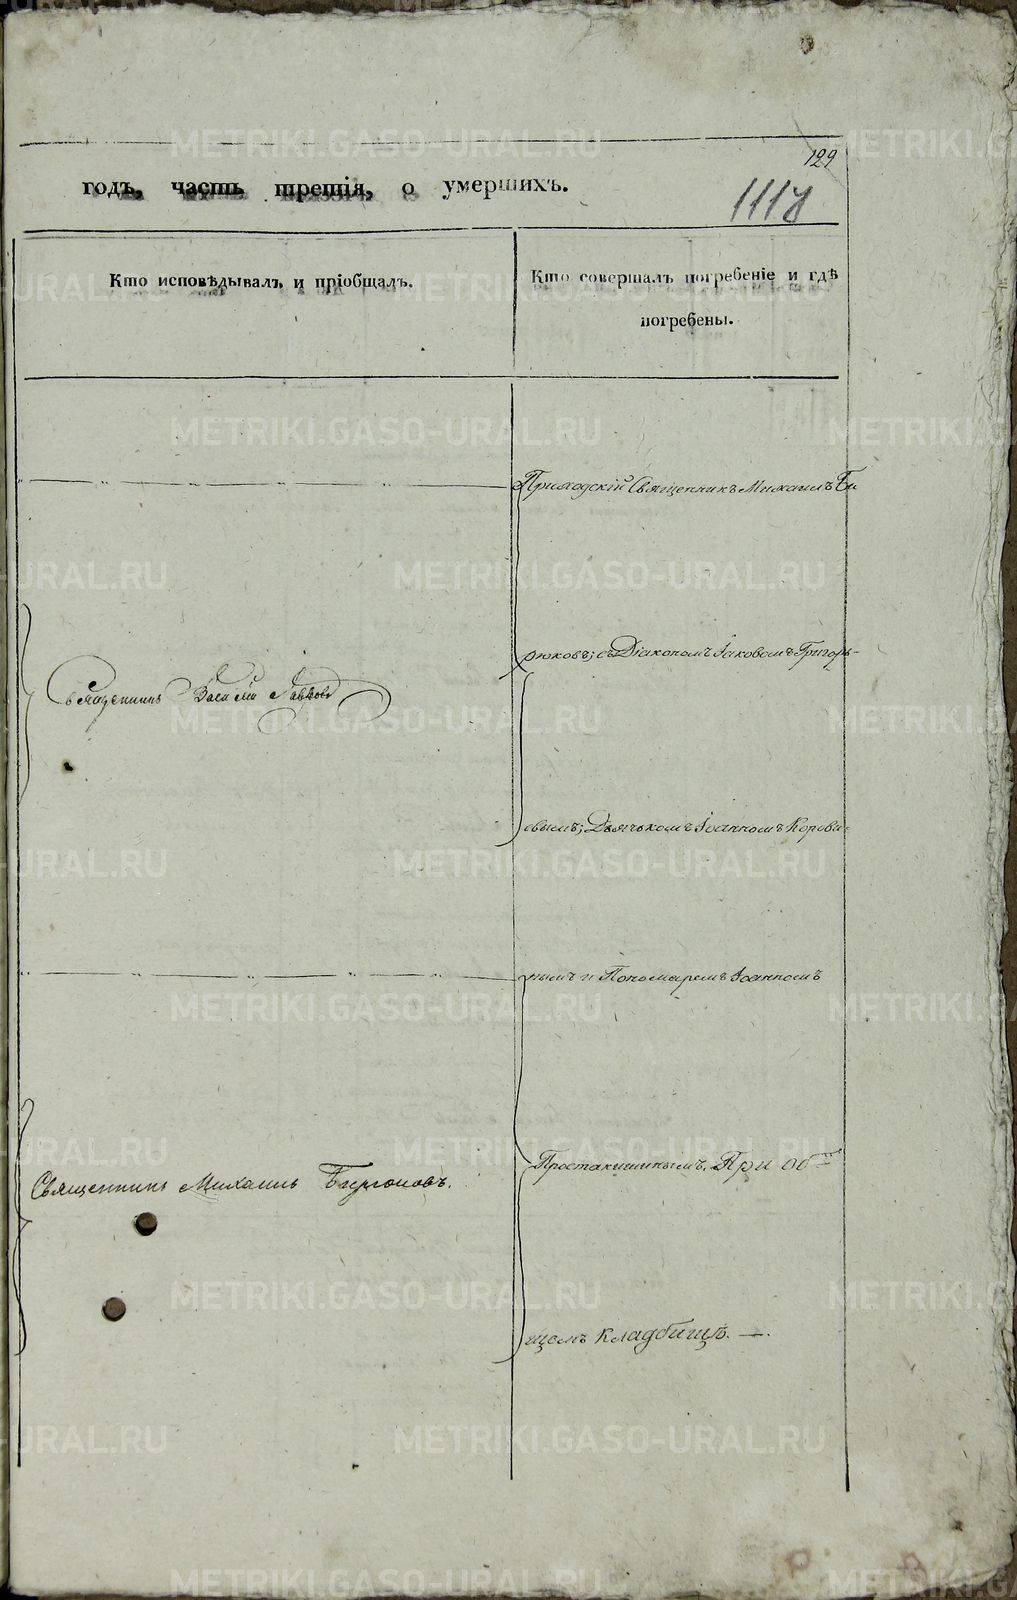 129
годъ, часть третія, о умершихъ.
1118
Кто исповѣдывалъ и пріобщалъ.
Кто совершалъ погребеніе и гдѣ
погребены.
Приходскій Священникъ Михаилъ Би
рюковъ; съ Діакономъ Іаковомъ Григорь-
Священникъ Василій
евымъ; Дьячкомъ Іоанномъ Корови-
нымъ и Пономаремъ Іоанномъ
Простакишинымъ. При об
Священникъ Михаилъ Бирюковъ.
щемъ кладбищѣ. —.
METRIKI.GASO-URAL.RU